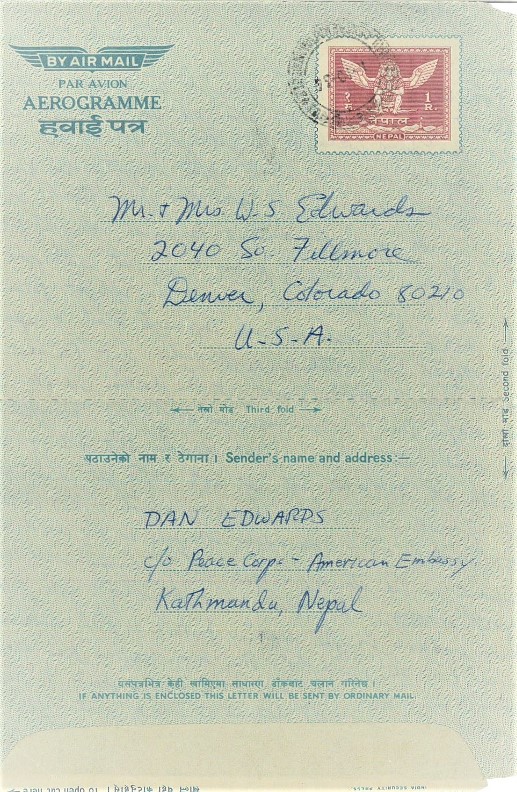 BY AIR MAIL
PAR AVION
AEROGRAMME
हवाई पत्र
१ रु. 1 R.
नेपाल
NEPAL
Mr. & Mrs. W. S Edwards
2040 So. Fillmore
Denver, Colorado 80210
U-S-A.
तेस्रो मोड Third fold
दोस्रो मोड Second fold
पठाउनेको नाम र ठेगाना । Sender's name and address:—
DAN EDWARDS
c/o Peace Corps - American Embassy
Kathmandu, Nepal
यसपत्रभित्र केही खामिएमा साधारण डाँकबाट चलान गरिनेछ ।
IF ANYTHING IS ENCLOSED THIS LETTER WILL BE SENT BY ORDINARY MAIL.
To open cut here
INDIA SECURITY PRESS